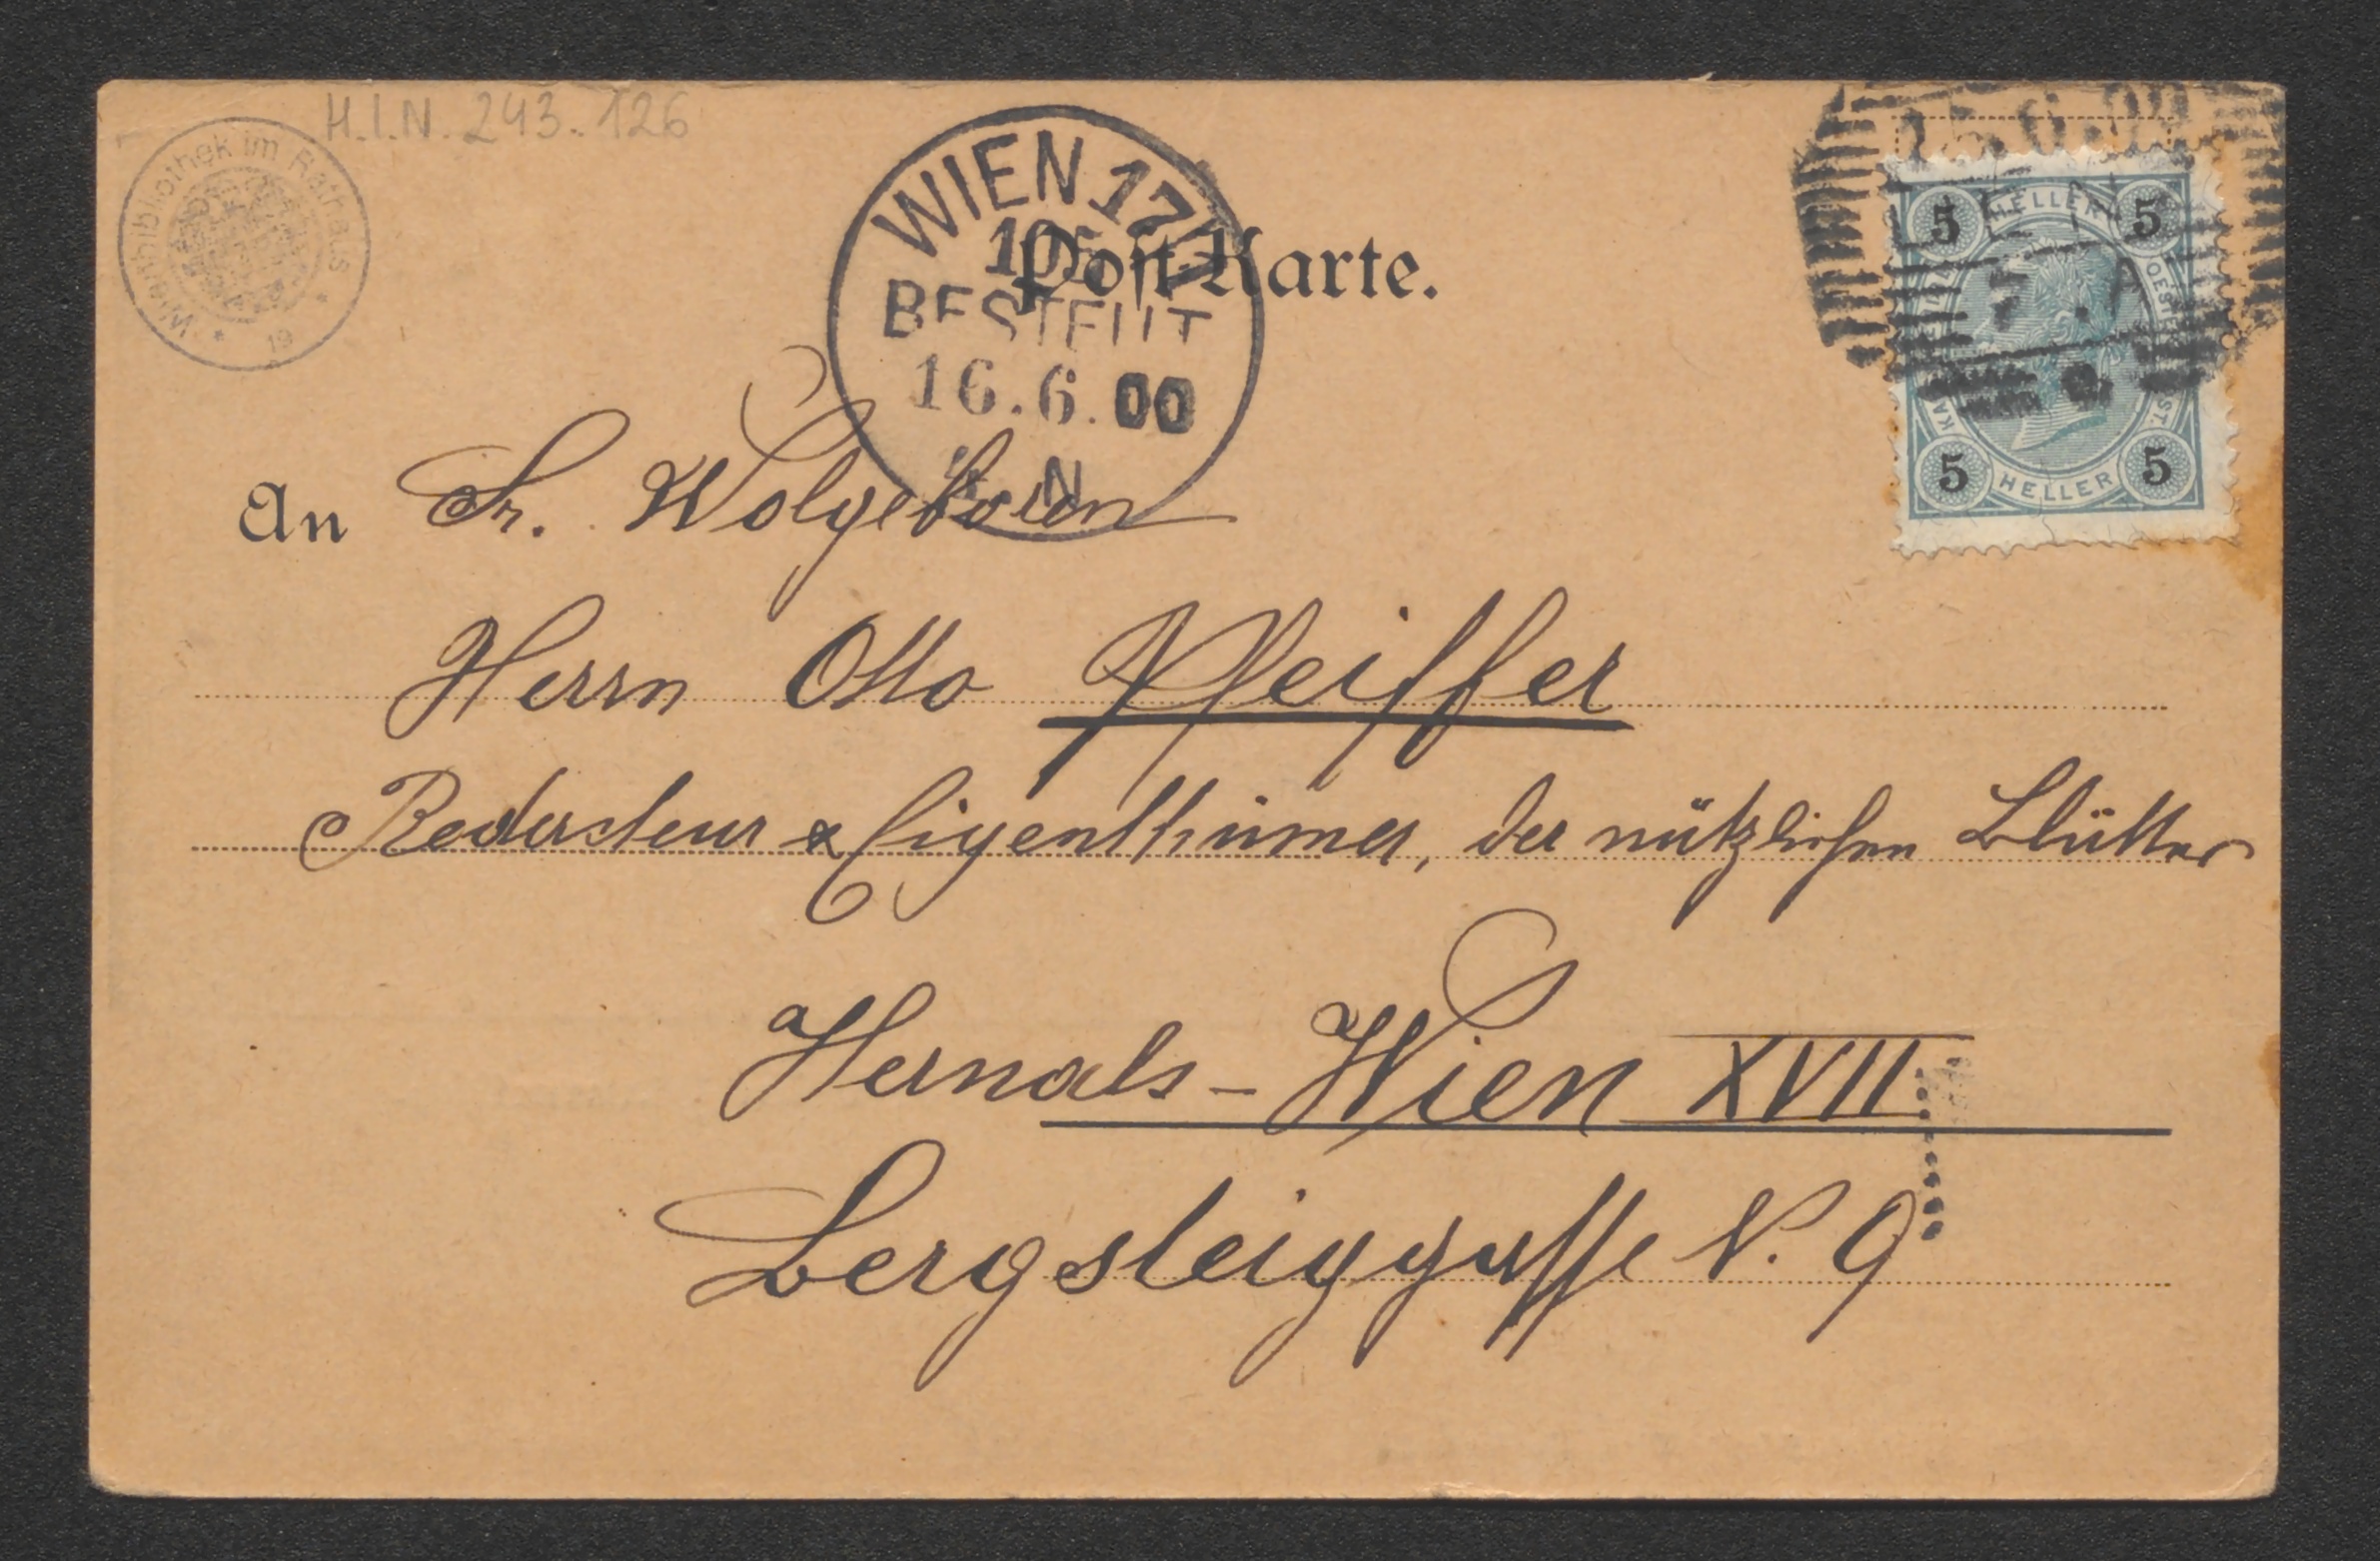 H.I.N. 243.126
Wienbibliothek im Rathaus
19
WIEN 17/1
BESTELLT
16.6.00
N
Post-Karte.
5 HELLER 5
5 HELLER 5
An Sr. Wolgeboren
Herrn Otto Pfeiffer
Redacteur & Eigenthümer, der nützlichen Blätter
Hernals - Wien XVII
Bergsteiggasse N. 9